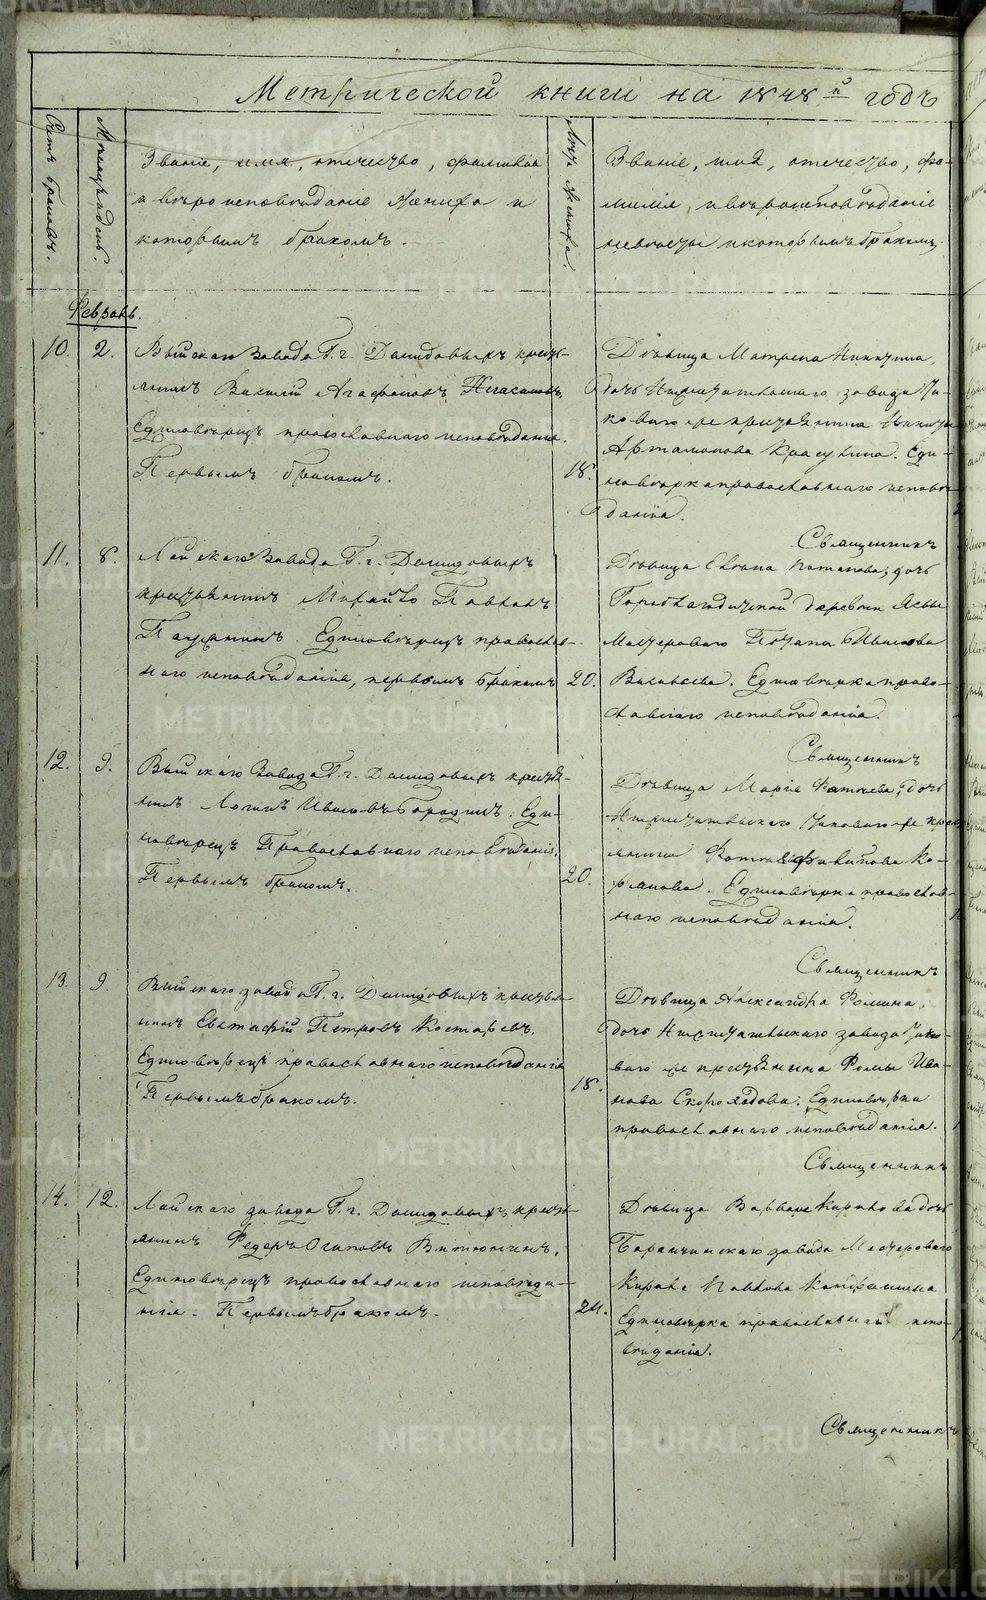 Метрической книги на 1848й годъ
Счетъ браковъ.
Месяцъ и день.
Званіе, имя, отчество, фамилія
и вѣроисповѣданіе Жениха и
которымъ бракомъ.
Лѣта Жениха.
Званіе, имя, отчество, фа-
милія, и вѣроисповѣданіе
невѣсты и которымъ бракомъ.
Февраль.
10.
2.
Выйскаго Завода Г. г. Демидовыхъ кресть-
янинъ Василій Агафоновъ
Единовѣрецъ православнаго исповѣданія.
Первымъ бракомъ.
18.
Дѣвица Матрена Никитина,
дочь Нижнетагильскаго завода
же крестьянина Никиты
Артамонова Красулина. Еди-
новѣрка православнаго исповѣ-
данія.
Священникъ
11.
8.
Лайскаго Завода Г. г. Демидовыхъ
крестьянинъ Михайло Павловъ
Единовѣрецъ православ-
наго исповѣданія, первымъ бракомъ
20.
Дѣвица Потапова, дочь
деревни
Мастероваго Потапа
Васильева. Единовѣрка право-
славнаго исповѣданія.
Священникъ
12.
9.
Выйскаго Завода Г. г. Демидовыхъ кресть-
янинъ Логинъ Ивановъ Бородинъ. Еди-
новѣрецъ Православнаго исповѣданія.
Первымъ бракомъ.
20.
Дѣвица Марія дочь
Нижнетагильскаго же крес
янина
Единовѣрка православ-
наго исповѣданія.
Священникъ
13.
9.
Выйскаго завода Г. г. Демидовыхъ крестья
нинъ Евстафій Петровъ Костаревъ.
Единовѣрецъ православнаго исповѣданія
Первымъ бракомъ.
18.
Дѣвица Александра Фомина.
дочь Нижнетагильскаго завода
ваго же крестьянина Фомы Ива-
нова Скороходова; Единовѣрка
православнаго исповѣданія.
Священникъ
14.
12.
Лайскаго завода Г. г. Демидовыхъ кресть
янинъ Федоръ Осиповъ Витюнинъ,
Единовѣрецъ православнаго исповѣда-
нія. Первымъ бракомъ.
24.
Дѣвица Варвара Кирилова дочь
Баранчинскаго завода Мастероваго
Кирила Павлова Кондрашина
Единовѣрка православнаго испо-
вѣданія.
Священникъ
METRIKI.GASO-URAL.RU